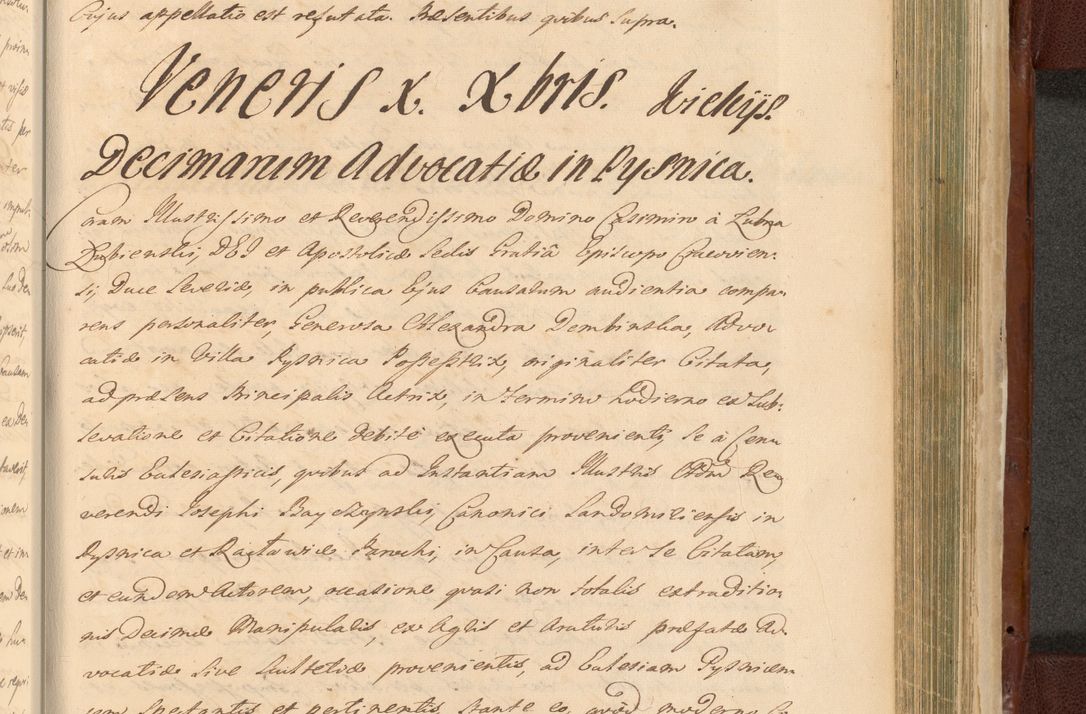 Cujus appellatio est refutata. Præsentibus quibus Supra.
Veneris X. Xbris. Kielcijs.
Decimarum Advocatiæ in Pysnica.
Coram Illustrissimo et Reverendissimo Domino Casimiro à Lubna
Łubienski, DEI et Apostolicæ Sedis Gratiâ Episcopo Cracovien-
si, Duce Severiæ, in publica Ejus Causarum audientia compa-
rens personaliter, Generosa Alexandra Dembinska, Advo-
catiæ in Villa Pysnica Possessitrix, originaliter Citata,
ad præsens Principalis Actrix, in termino hodierno ex Sub-
levatione et Citatione debitè executa provenienti, se à Cen-
suris Eclesiasticis, quibus ad Instantiam Illustris Adm Re-
verendi Josephi Bayczynski, Canonici Sandomiriensis in
Pysnica et Racławice Parochi, in Causa, inter Se Citatam,
et eundem Actorem, occasione quasi non totalis extraditio-
nis Decimæ Manipularis, ex Agris et Araturis præfatæ Ad-
vocatiæ Sive Scultetiæ provenientis, ad Eclesiam Pysnicen
sem Spectantis et pertinentis, Stante eo, quòd moderno